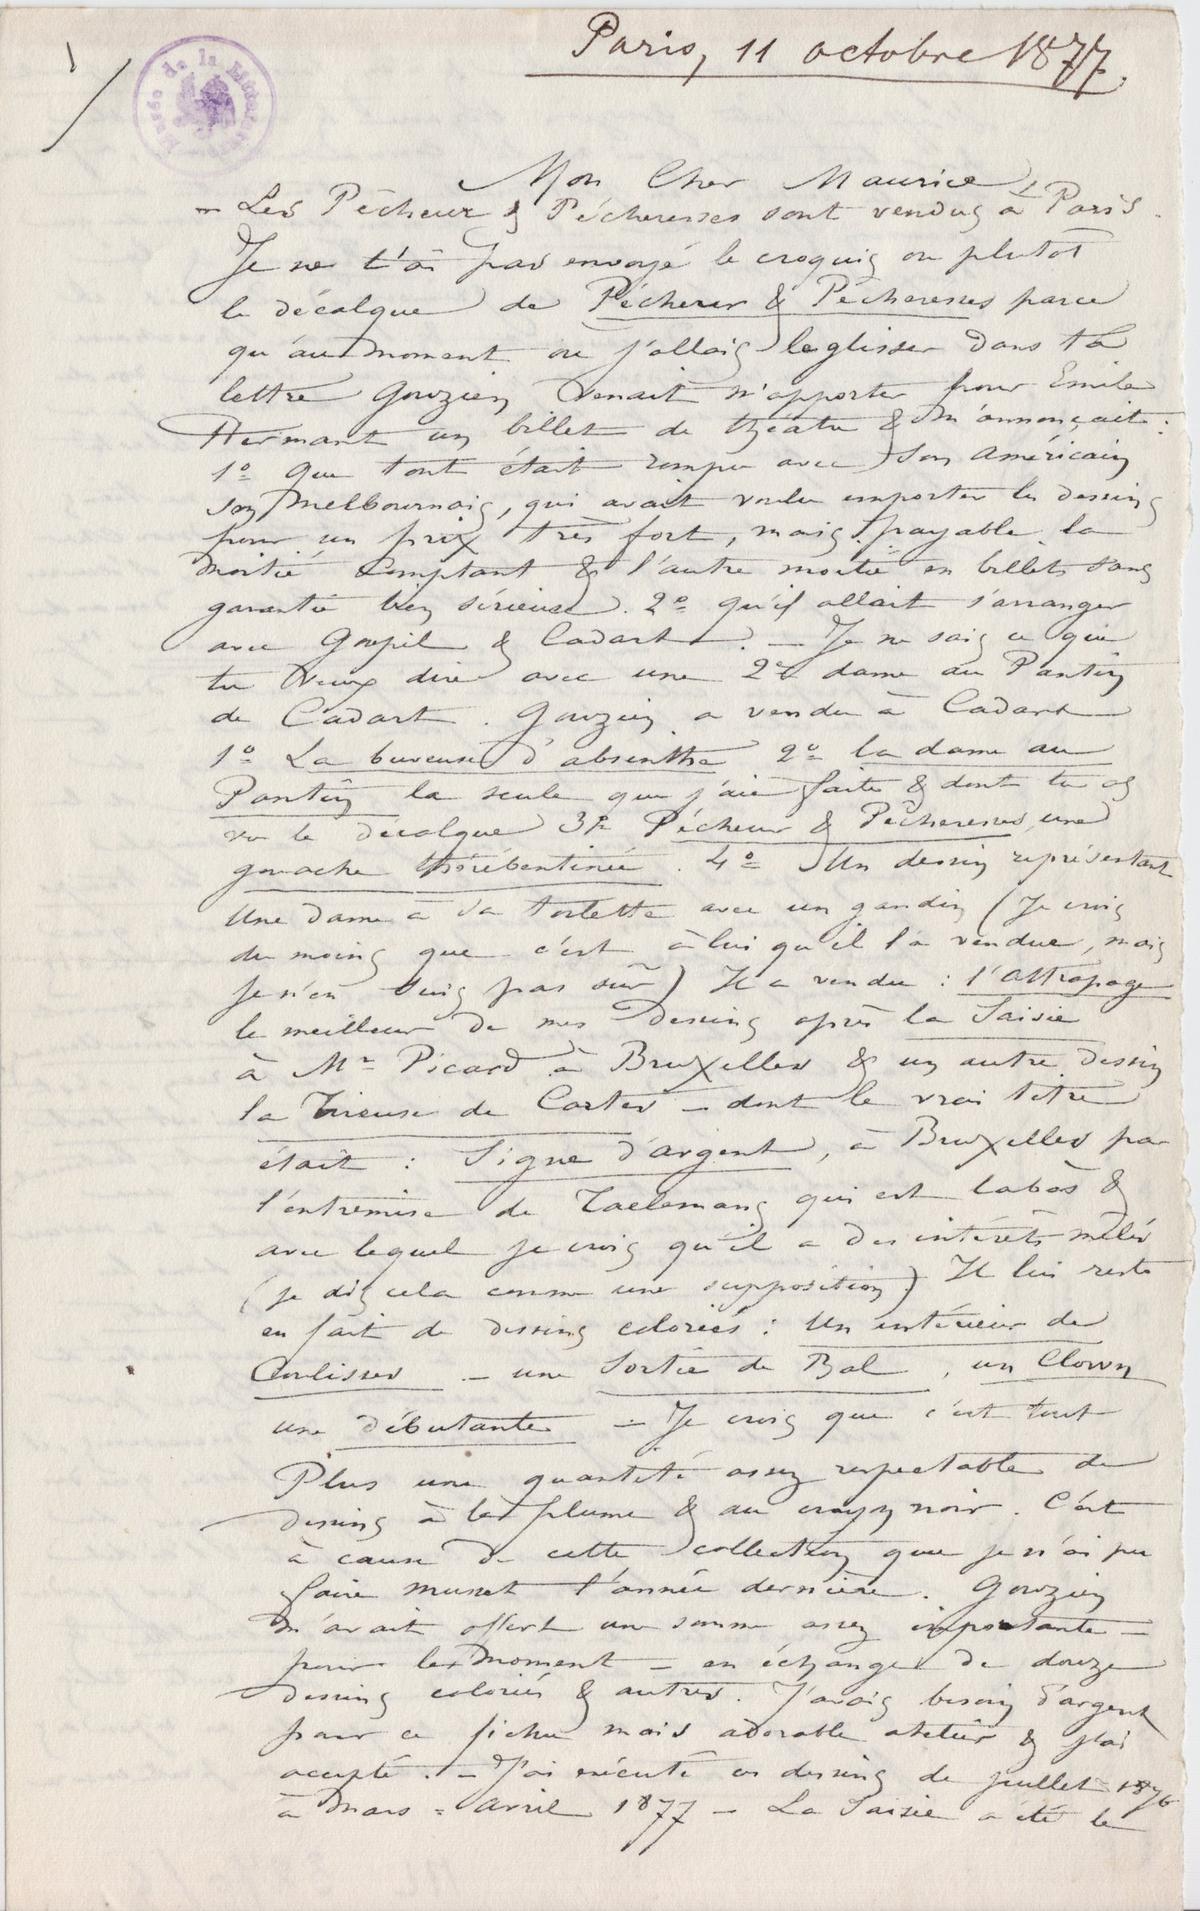 Paris, 11 octobre 1877.
Musée de la
Mon Cher Maurice,
– Les Pêcheurs & Pécheresses sont vendus à Paris.
Je ne t'ai pas envoyé le croquis ou plutôt
le décalque de Pêcheur & Pêcheresses parce
qu'au moment ou j'allais le glisser dans ta
lettre Gouzien venait m'apporter pour Emile
Hermant un billet de théatre & m'annonçait :
1º que tout était rompu avec son américain
son Melbournais, qui avait voulu emporter les dessins
pour un prix très fort, mais payable la
moitié comptant & l'autre moitié en billets sans
garantie bien sérieuse. 2º qu'il allait s'arranger
avec Goupil & Cadart. – Je ne sais ce que
tu veux dire avec une 2e dame au Pantin
de Cadart. Gouzien a vendu à Cadart
1º La buveuse d'absinthe 2º la dame au
Pantin la seule que j'aie faite & dont tu as
vu le décalque 3º Pécheur & Pêcheresses, une
gouache thérébentinée. 4º Un dessin représentant
Une dame à sa toilette avec un gandin (Je crois
du moins que c'est à lui qu'il l'a vendue, mais
je n'en suis pas sûr) Il a vendu : l'attrapage
le meilleur de mes Dessins après la Saisie
à Mr Picard à Bruxelles & un autre dessin
la Tireuse de Cartes – dont le vrai titre
était : Signe d'argent, à Bruxelles par
l'entremise de Taelemans qui est labàs &
avec lequel je crois qu'il a des intérêts mêlés
(je dis cela comme une supposition) Il lui reste
en fait de dessins coloriés : Un intérieur de
Coulisses – une Sortie de Bal, un Clown
une débutante – Je crois que c'est tout
Plus une quantité assez respectable de
dessins à la plume & au crayon noir. C'est
à cause de cette collection que je n'ai pu
faire musset l'année dernière. Gouzien
m'avait offert une somme assez importante –
pour le moment – en échange de douze
dessins coloriés & autres. J'avais besoin d'argent
pour ce fichu mais adorable atelier & j'ai
accepté. – J'ai exécuté ces dessins de juillet 1876
à Mars = avril 1877 – La Saisie a été le